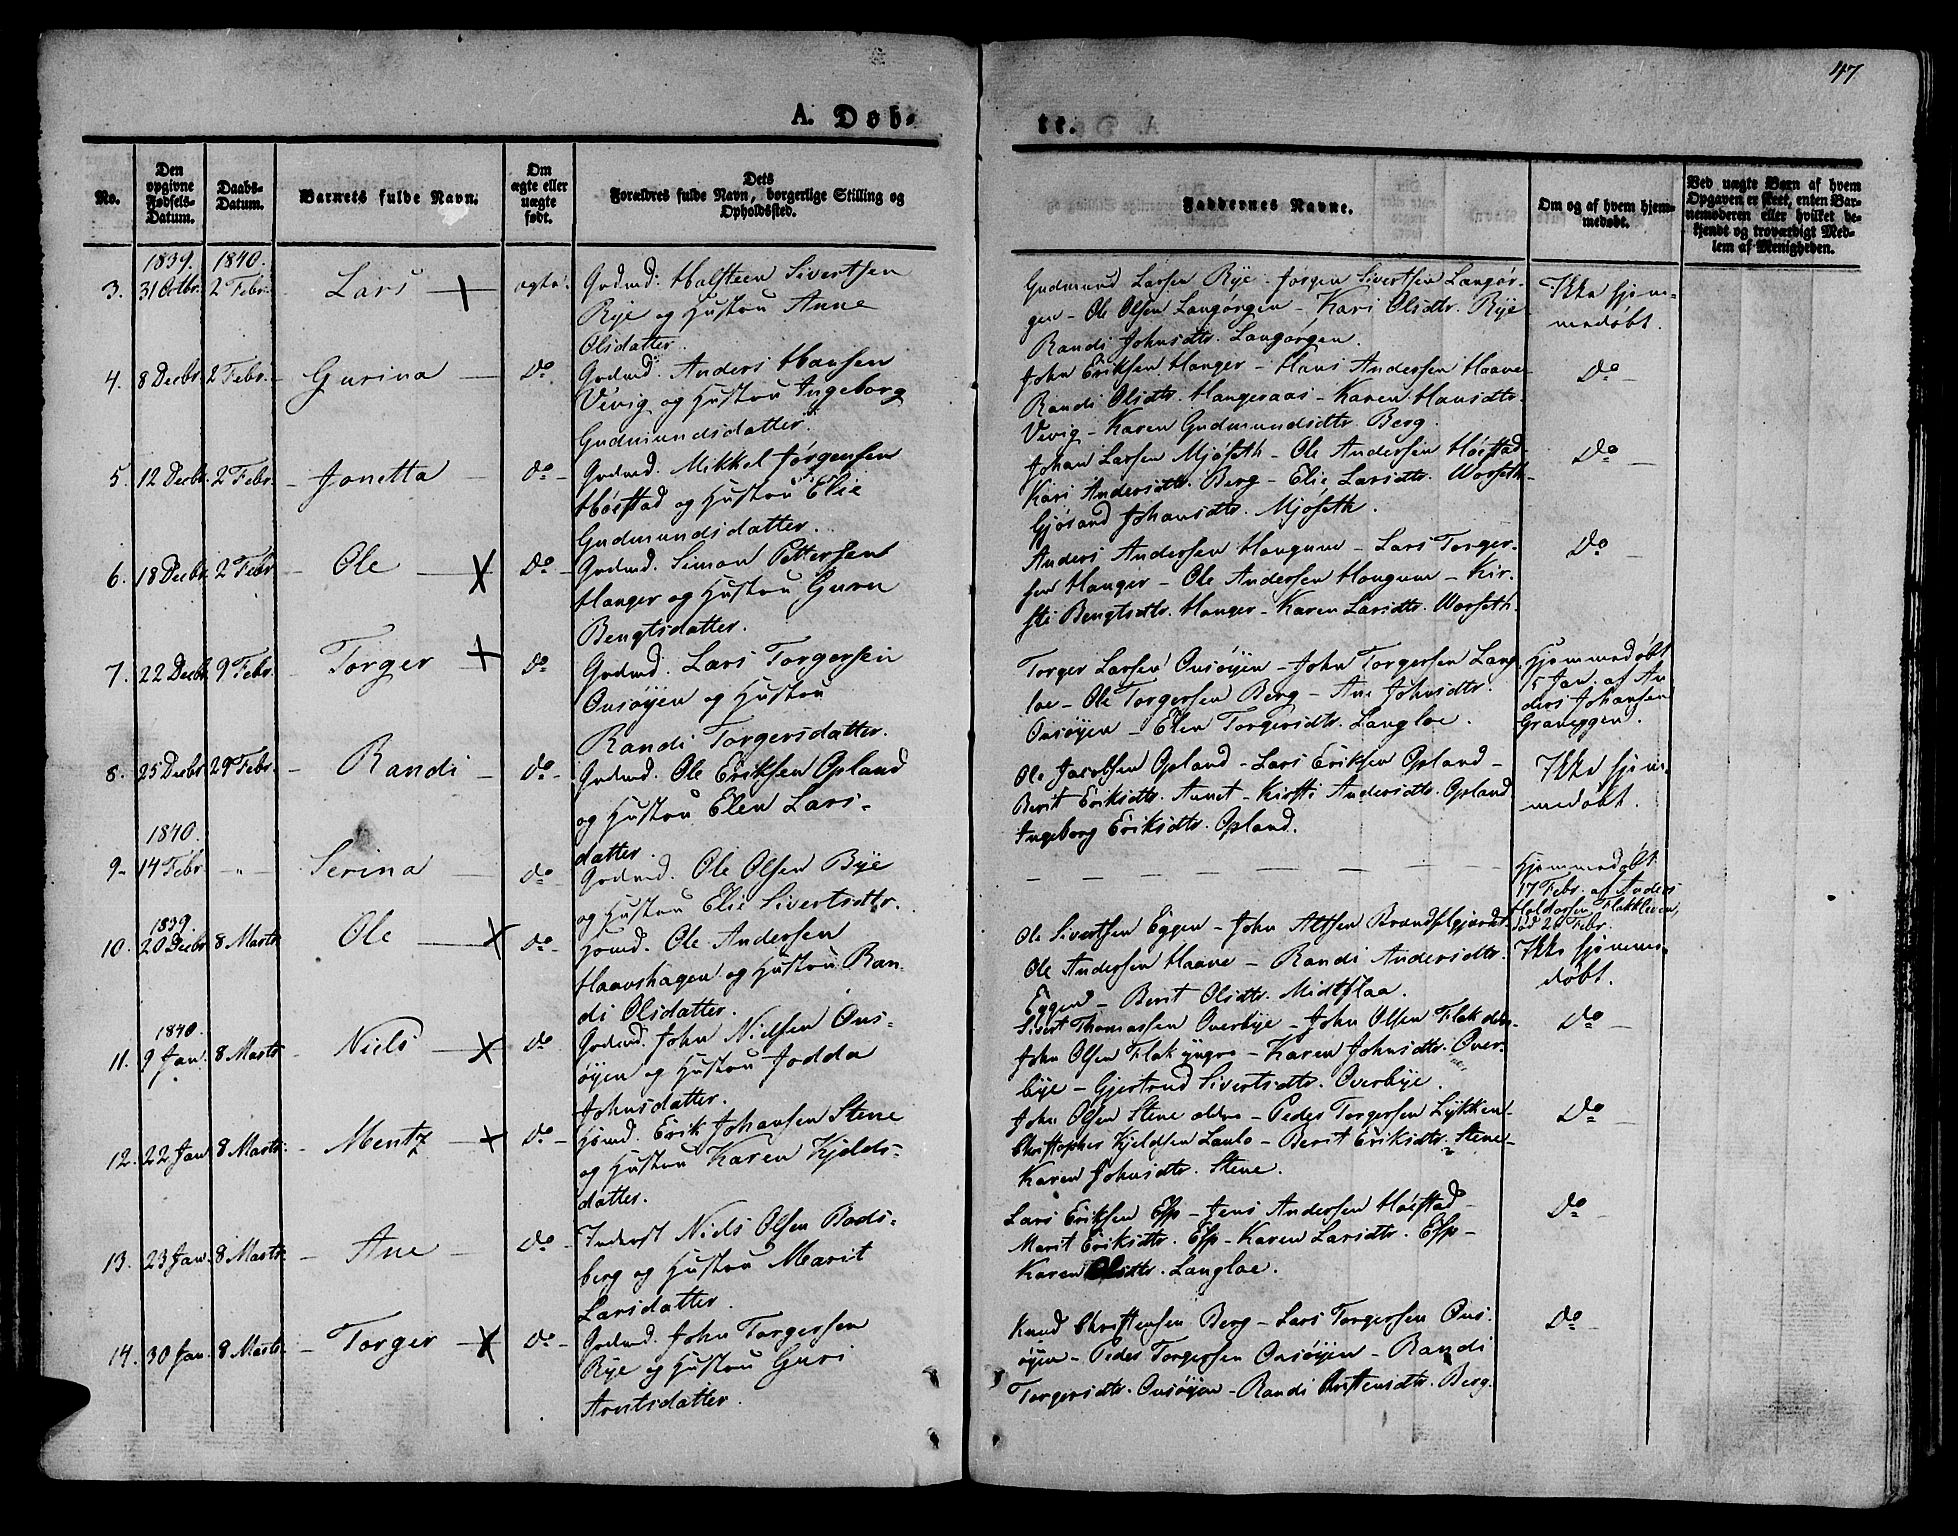 47
A. Døb-
te.
No.
Den opgivne Fødsels-Datum.
Daabs-Datum.
Barnets fulde Navn.
Om ægte eller uægte født.
Dets Forældres fulde Navn, borgerlige Stilling og Opholdssted.
Faddernes Navne.
Om og af hvem hjem-medøbt.
Ved uægte Børn af hvem Opgaven er skeet, enten Bar-nemoderen eller hvilket be-kjendt og troværdigt Med-lem af Menigheden.
1839. 1840.
3. 31 Octbr. 2 Febr. Lars ægte.
Grdmd. Halsteen Sivertsen
Rye og Hustru Anne
Olsdatter.
Gudmund Larsen Rye - Jørgen Sivertsen Langør-
gen - Ole Olsen Langørgen - Kari Olsdtr. Rye
Randi Johnsdtr. Langørgen.
Ikke hjem-
medøbt.
4. 8 Decbr. 2 Febr. - Gurina - Do
Grdmd. Anders Hansen
Vevig og Hustru Ingeborg
Gudmundsdatter.
John Eriksen Hanger - Hans Andersen Haave
Randi Olsdtr. Hangeraas - Karen Hansdtr.
Vevig - Karen Gudmundsdtr. Berg.
Do -
5. 12 Decbr. 2 Febr. - Jonetta - Do -
Grdmd. Mikkel Jørgensen
Høistad og Hustru Elie
Gudmundsdatter.
Johan Larsen Mjøseth - Ole Andersen Høistad
Kari Andersdtr. Berg - Elie Larsdtr. Worseth-
Gjøsand Johansdtr. Mjøseth.
Do -
6. 18 Decbr. 2 Febr - Ole - Do -
Grdmd. Simon Pettersen
Hanger og Hustru Guru
Bengtsdatter.
Anders Andersen Hongum - Lars Torger-
sen Hanger - Ole Andersen Hongum - Kir-
sti Bengtsdtr. Hanger - Karen Larsdtr. Worseth.
Do -
7. 22 Decbr. 9 Febr. Torger Do
Grdmd. Lars Torgersen
Onsøyen og Hustru
Randi Torgersdatter.
Torger Larsen Onsøyen - John Torgersen Lang-
loe - Ole Torgersen Berg - Ane Johnsdtr.
Onsøyen - Elen Torgersdtr. Langloe.
Hjemmedøbt
5 Jan. af An
ders Johansen
Graneggen.
8. 25 Decbr. 29 Febr. - Randi - Do -
Grdmd. Ole Eriksen Opland
og Hustru Elen Lars-
datter.
Ole Jacobsen Opland - Lars Eriksen Opland -
Berit Eriksdtr. Aunet - Kirsti Andersdtr. Opland
Ingeborg Eriksdtr. Opland.
Ikke hjem-
medøbt.
1840.
9 - 14 Febr - " - Serina - Do -
Grdmd. Ole Olsen Bye
og Hustru Elie Sivertsdtr.
Hjemmedøbt
17 Febr. af Anders
Haldorsen Flakkleven,
død 20 Febr.
1839.
10. 20 Decbr. 8 Marts Ole - Do -
Hsmd. Ole Andersen
Haavshagen og Hustru Ran-
di Olsdatter.
Ole Sivertsen Eggen - John Altsen Brandsgjærdet
Ole Andersen Haave - Randi Andersdtr.
Eggen - Berit Olsdtr. Midtflaa.
Ikke hjemme-
døbt.
1840.
11. 9 Jan. 8 Marts - Niels - Do -
Grdmd. John Nielsen Ons-
øyen og Hustru Jodda
Johnsdatter.
Sivert Thomassen Overbye - John Olsen Flak
John Olsen Flak yngre - Karen Johnsdtr. Over-
bye - Gjertrud Sivertsdtr. Overbye.
Do -
12. 22 Jan 8 Marts - Mentz - Do -
Hsmd. Erik Johansen Stene
og Hustru Karen Kjelds-
datter.
John Olsen Stene ældre - Peder Torgersen Lykken
Christopher Kjeldsen Laulo - Berit Eriksdtr. Stene -
Karen Johnsdtr. Stene.
Do -
13. 23 Jan. 8 Marts - Ane - Do -
Inderst Niels Olsen Bods-
berg og Hustru Marit
Larsdatter.
Lars Eriksen Esp - Jens Andersen Høistad -
Marit Eriksdtr. Esp - Karen Larsdtr. Esp -
Karen Olsdtr. Langloe.
Do -
14. 30 Jan. 8 Marts - Torger - Do -
Grdmd. John Torgersen
Rye og Hustru Guri
Arntsdatter.
Knud Christensen Berg - Lars Torgersen Ons-
øyen - Peder Torgersen Onsøyen - Randi
Torgersdtr. Onsøyen - Randi Christensdtr. Berg.
Do -